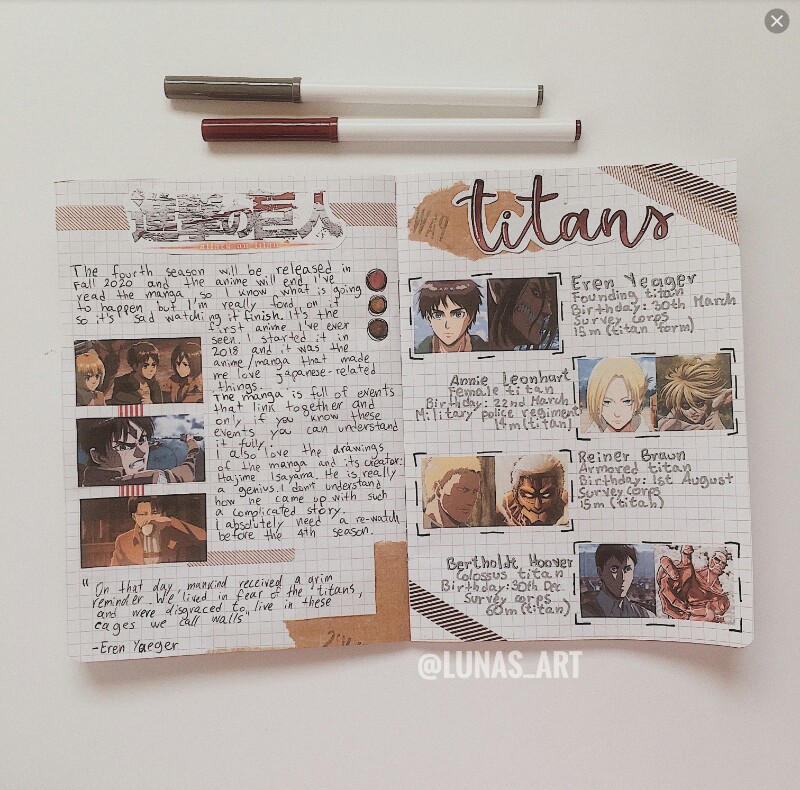 進撃の巨人
attack on titan
The fourth season will be released in
Fall 2020 and the anime will end. I've
read the manga, so I know what is going
to happen but I'm really fond on it
so it's sad watching it finish. It's the
first anime I've ever
seen. I started it in
2018 and it was the
anime/manga that made
me love japanese-related
things.
The manga is full of events
that link together and
only if you know these
events you can understand
it fully.
I also love the drawings
of the manga and its creator:
Hajime Isayama. He is really
a genius. I don't understand
how he came up with such
a complicated story.
I absolutely need a re-watch
before the 4th season.
"On that day, mankind received a grim
reminder. We lived in fear of the titans,
and were disgraced to live in these
cages we call walls"
-Eren Yaeger
titans
Eren Yeager
Founding titan
Birthday: 30th March
Survey Corps
15m (titan form)
Annie Leonhart
Female titan
Birthday: 22nd March
Military police regiment
14m (titan)
Reiner Braun
Armored titan
Birthday: 1st August
Survey Corps
15m (titan)
Bertholdt Hoover
Colossus titan
Birthday: 30th Dec
Survey corps
60m (titan)
@LUNAS_ART